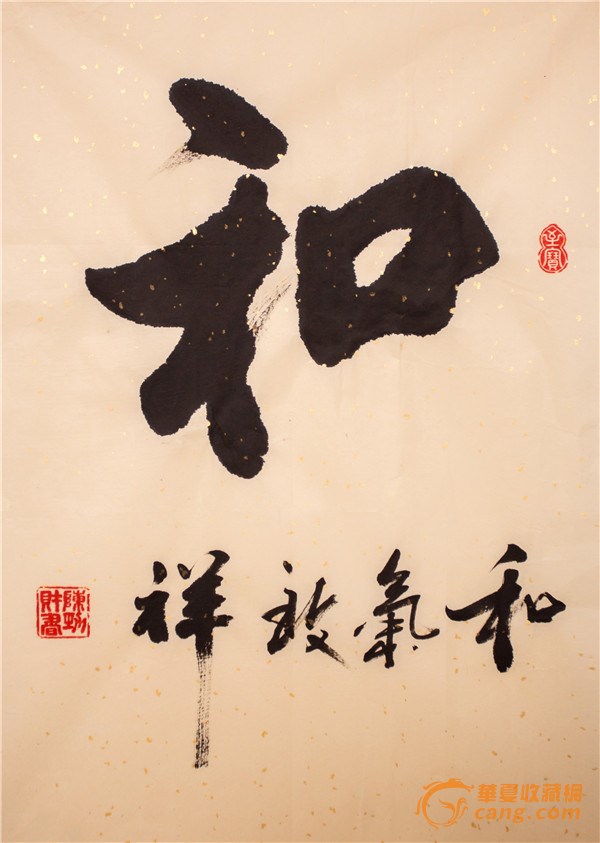 和
和氣致祥
華夏收藏網
cang.com